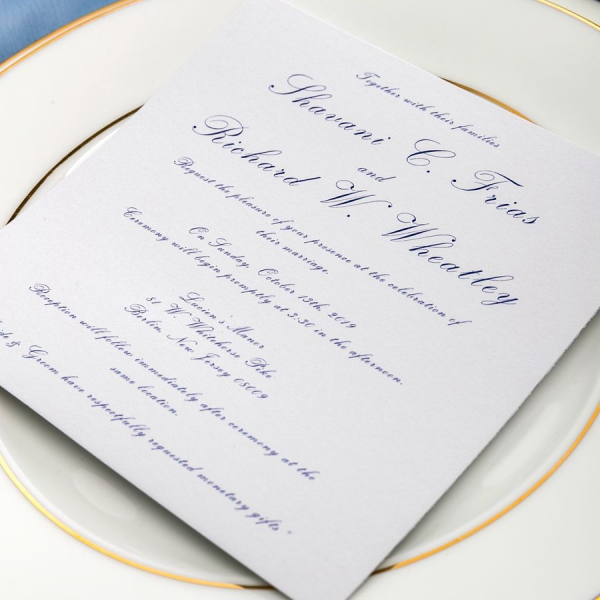 Together with their families
Shavani C. Frias
and
Richard W. Wheatley
Request the pleasure of your presence at the celebration of
their marriage.
On Sunday, October 13th, 2019
Ceremony will begin promptly at 3:30 in the afternoon.
Lucien's Manor
W. Whitehorse Pike
Berlin, New Jersey 08009
Reception will follow immediately after ceremony at the
same location.
& Groom have respectfully requested monetary gifts.